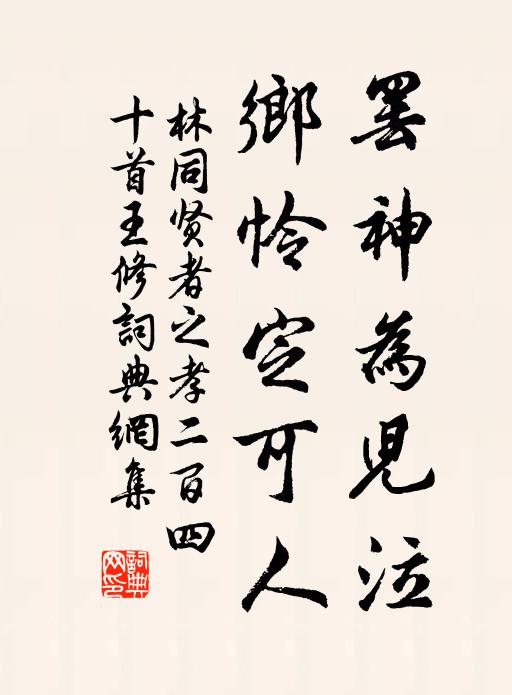 罢神為児泣
鄉怜定可人
林同贤者之孝二百四
十首王修詞典網集
詞典网印